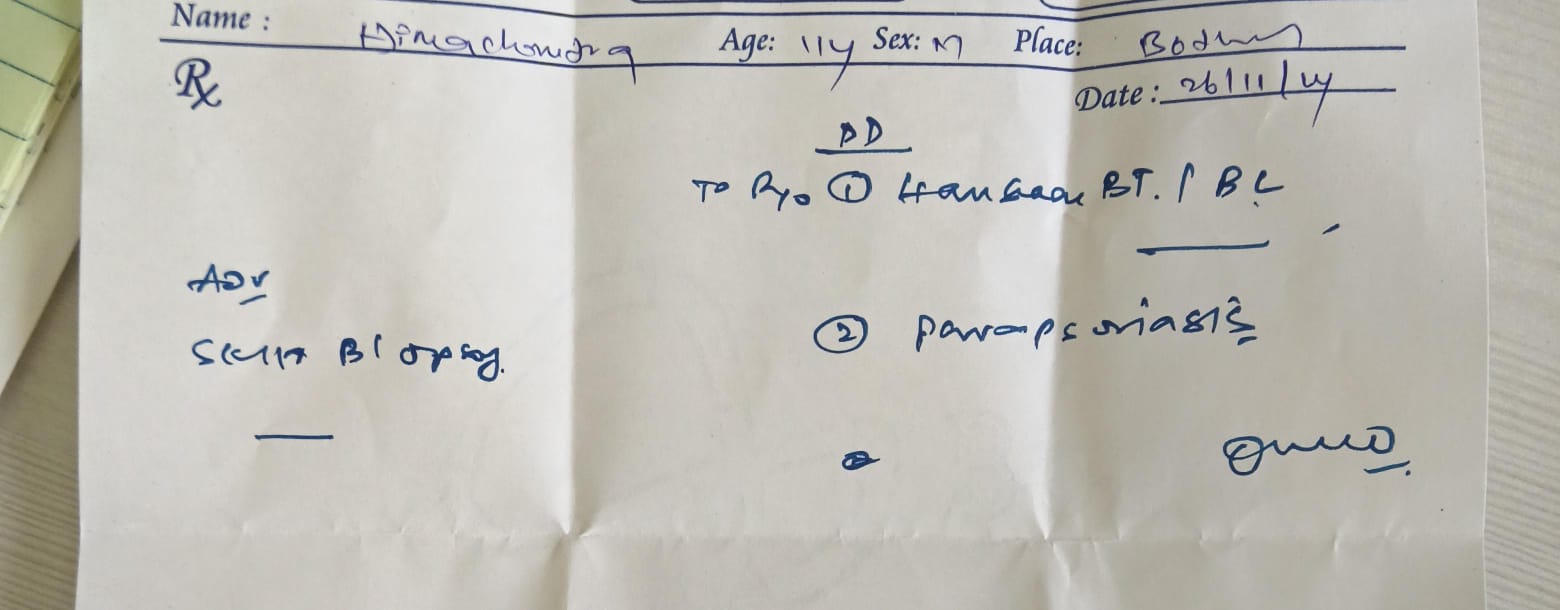 Name : Himachandra Age: 11y Sex: M Place: Bodhan
Rx
Date : 26/11/24
DD
To R/o ① Hansen BT. / BL
Adv
② parapsoriasis
Skin Biopsy.